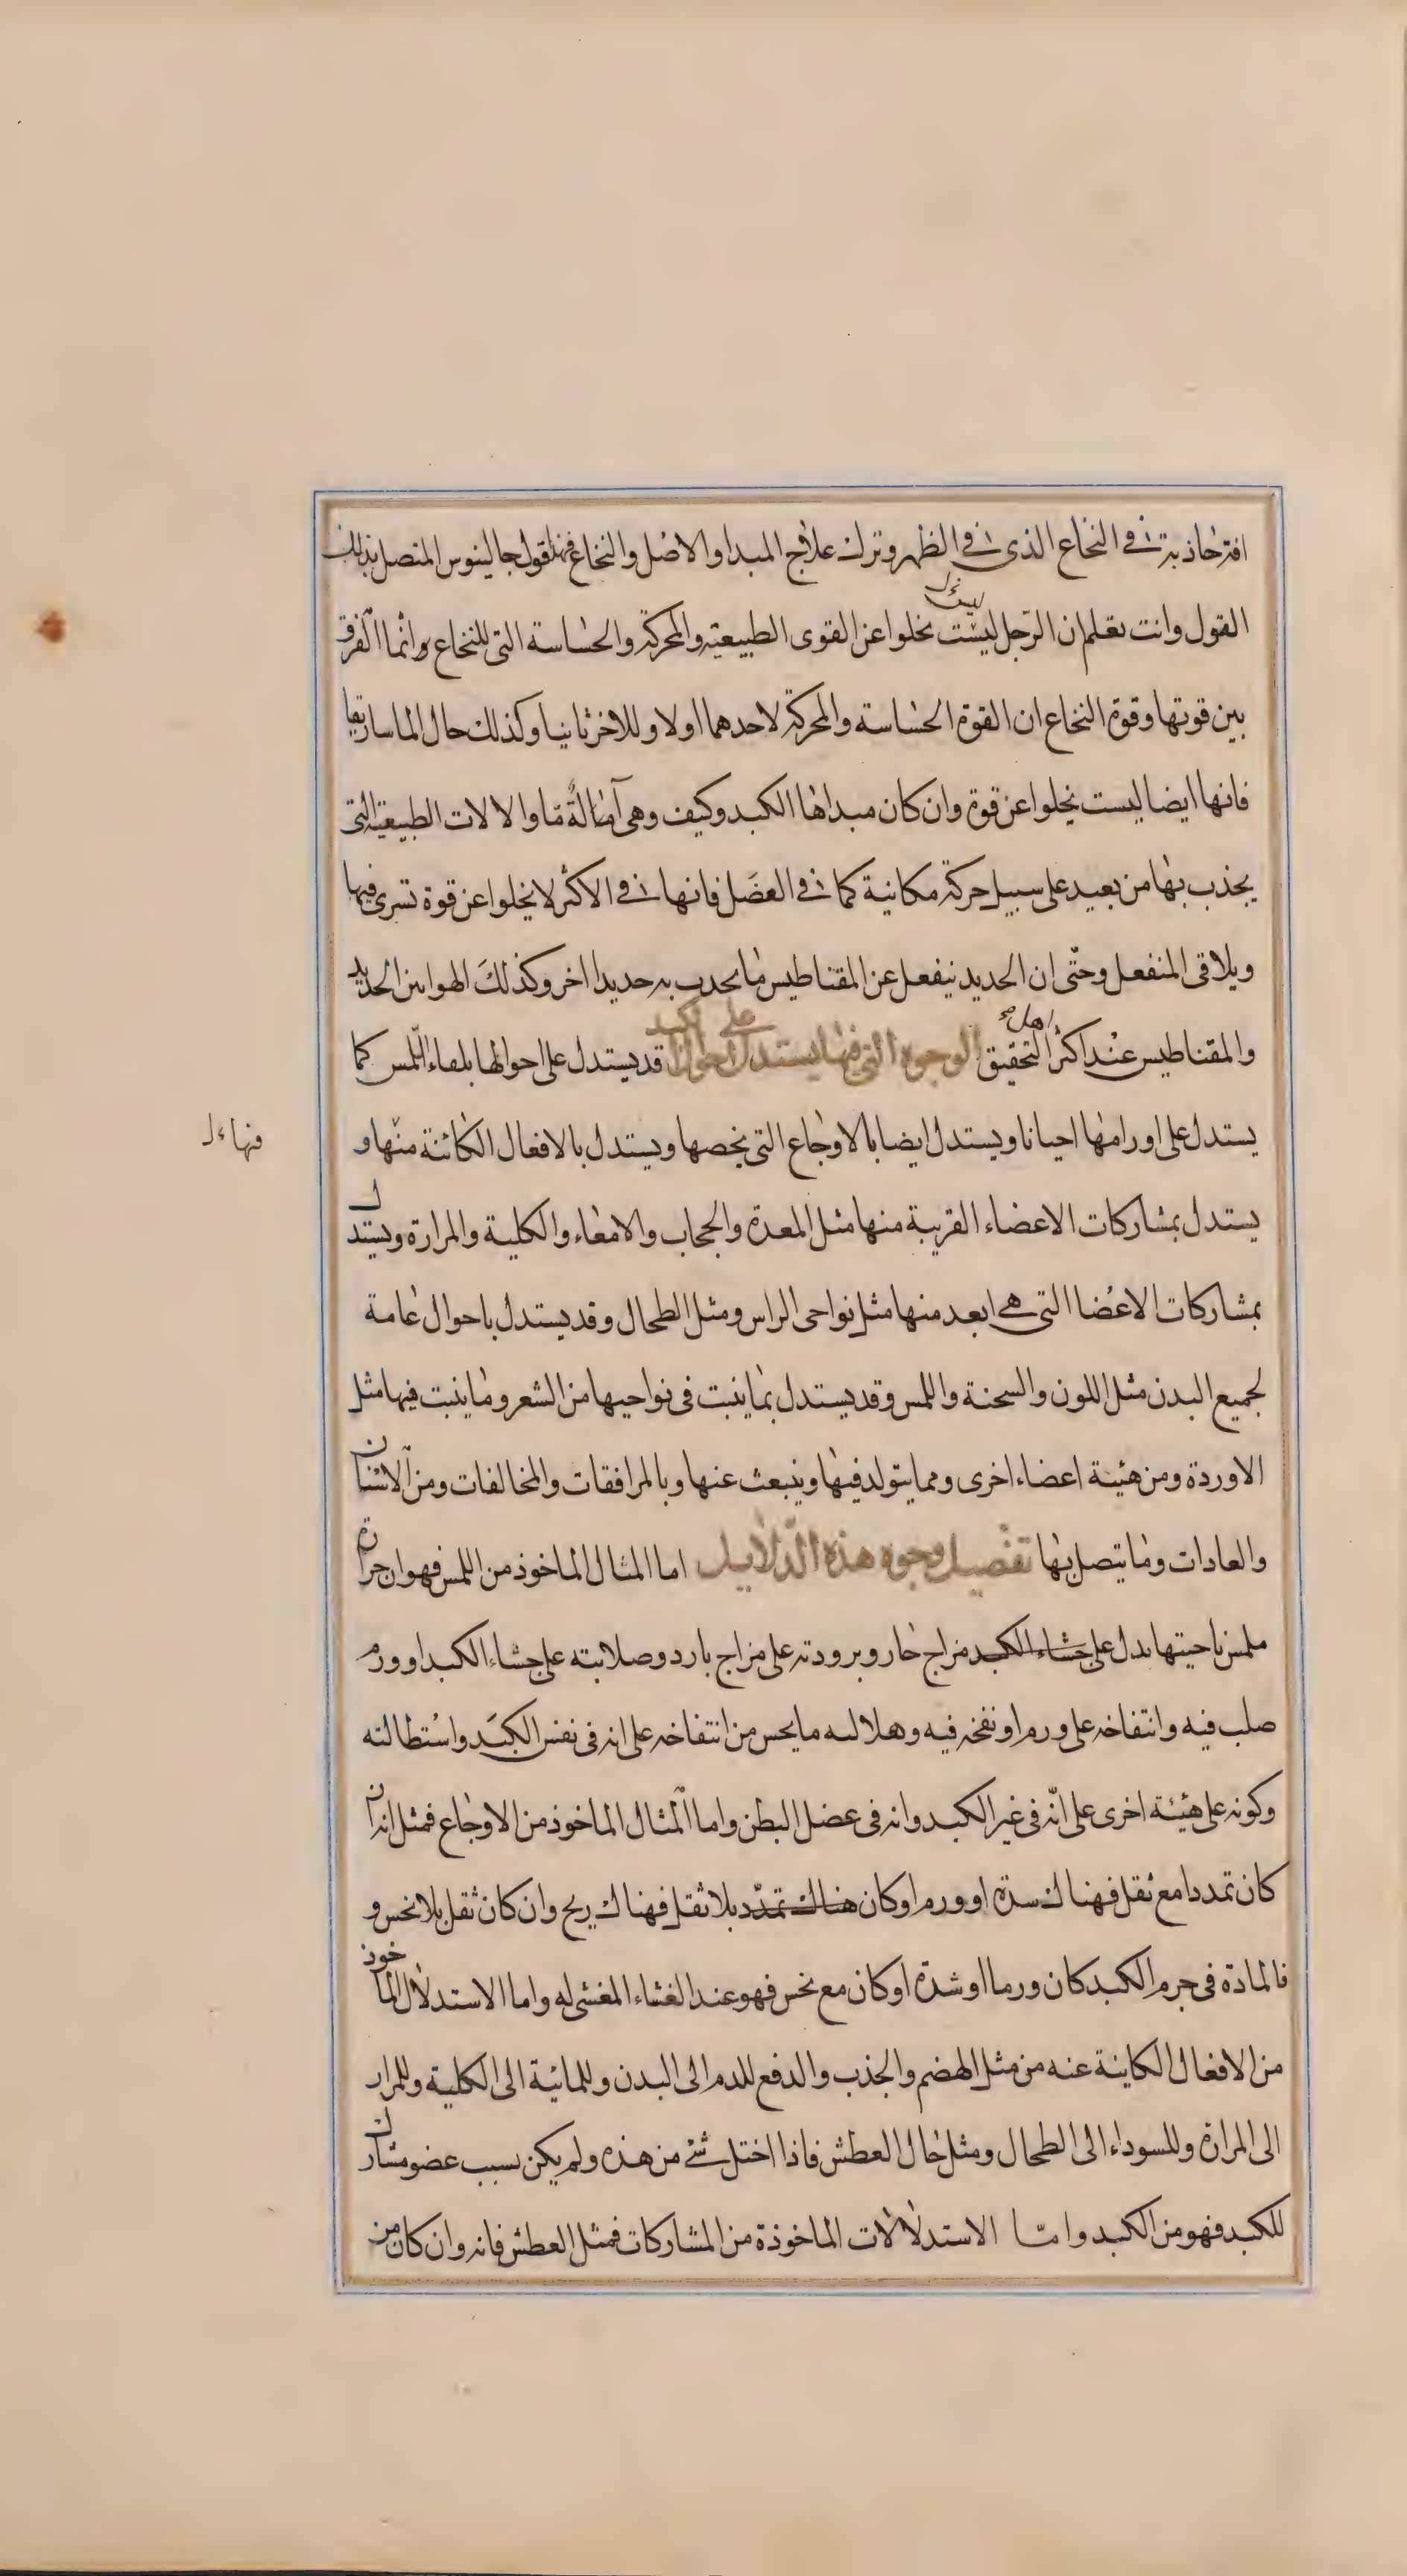 افترحاذبته في النخاع الذي في الظهر وترك علاج المبدا والاصل والنخاع فهذا قول جالينوس المتصل بذلك
القول وانت تعلم ان الرّجل ليست تخلوا عن القوى الطبيعيّة والمحركة والحساسة التي للنخاع وانما الفرق
بين قوتها وقوة النخاع ان القوة الحساسة والمحركة لاحدهما اولا وللاخر ثانيا وكذلك حال الماساريقا
فانها ايضا ليست تخلوا عن قوة وان كان مبداها الكبد وكيف وهي آلة ما والالات الطبيعية التي
يجذب بها من بعيد على سبيل حركة مكانية كما في العضل فانها في الاكثر لا يخلوا عن قوة تسرى فيها
ويلاقى المنفعل وحتّى ان الحديد ينفعل عن المقناطيس ما يجذب به حديدا اخر وكذلكَ الهوا بين الحديد
والمقناطيس عند اكثر اهل التحقيق الوجوه التي فيها يستدل على احوال الكبد قد يستدل على احوالها بلقاء اللّمس كما
يستدل على اورامها احيانا ويستدل ايضا بالاوجاع التي تخصها ويستدل بالافعال الكائنة منها و
فنهاء
يستدل بمشاركات الاعضاء القريبة منها مثل المعدة والحجاب والامعاء والكلية والمرارة ويستدل
بمشاركات الاعضا التي هي ابعد منها مثل نواحى الراس ومثل الطحال وقد يستدل باحوال عامة
لجميع البدن مثل اللون والسحنة واللمس وقد يستدل بما ينبت في نواحيها من الشعر وما ينبت فيها مثل
الاوردة ومن هيئة اعضاء اخرى ومما يتولد فيها وينبعث عنها وبالمرافقات والمخالفات ومن الاسنان
والعادات وما يتصل بها تفصيل وجوه هذه الدّلايل اما المثال الماخوذ من اللمس فهو ان حرارة
ملمس ناحيتها يدل على جشاء الكبد مزاج حار وبرودته على مزاج بارد وصلابته على جشاء الكبد او ورم
صلب فيه وانتفاخه على ورم او نفخة فيه وهلالىه ما يحس من انتفاخه على انه في نفس الكبَد واستطالته
وكونه على هيئة اخرى على انّه في غير الكبد وانه في عضل البطن واما المثال الماخوذ من الاوجاع فمثل انه ان
كان تمددا مع ثقل فهناك سدة او ورم او كان هناك تمدّد بلا ثقل فهناك ريح وان كان ثقل بلا نخس و
فالمادة في جرم الكبد كان ورما او شدة او كان مع نخس فهو عند الغشاء المغشى له واما الاستدلال الماخوذ
من الافعال الكاينة عنه من مثل الهضم والجذب والدفع للدم الى البدن وللمائية الى الكلية وللمرار
الى المرارة وللسوداء الى الطحال ومثل حال العطش فاذا اختل شئ من هذه ولم يكن بسبب عضو مشارك
للكبد فهو من الكبد وامّا الاستدلالات الماخوذة من المشاركات فمثل العطش فانه وان كان من